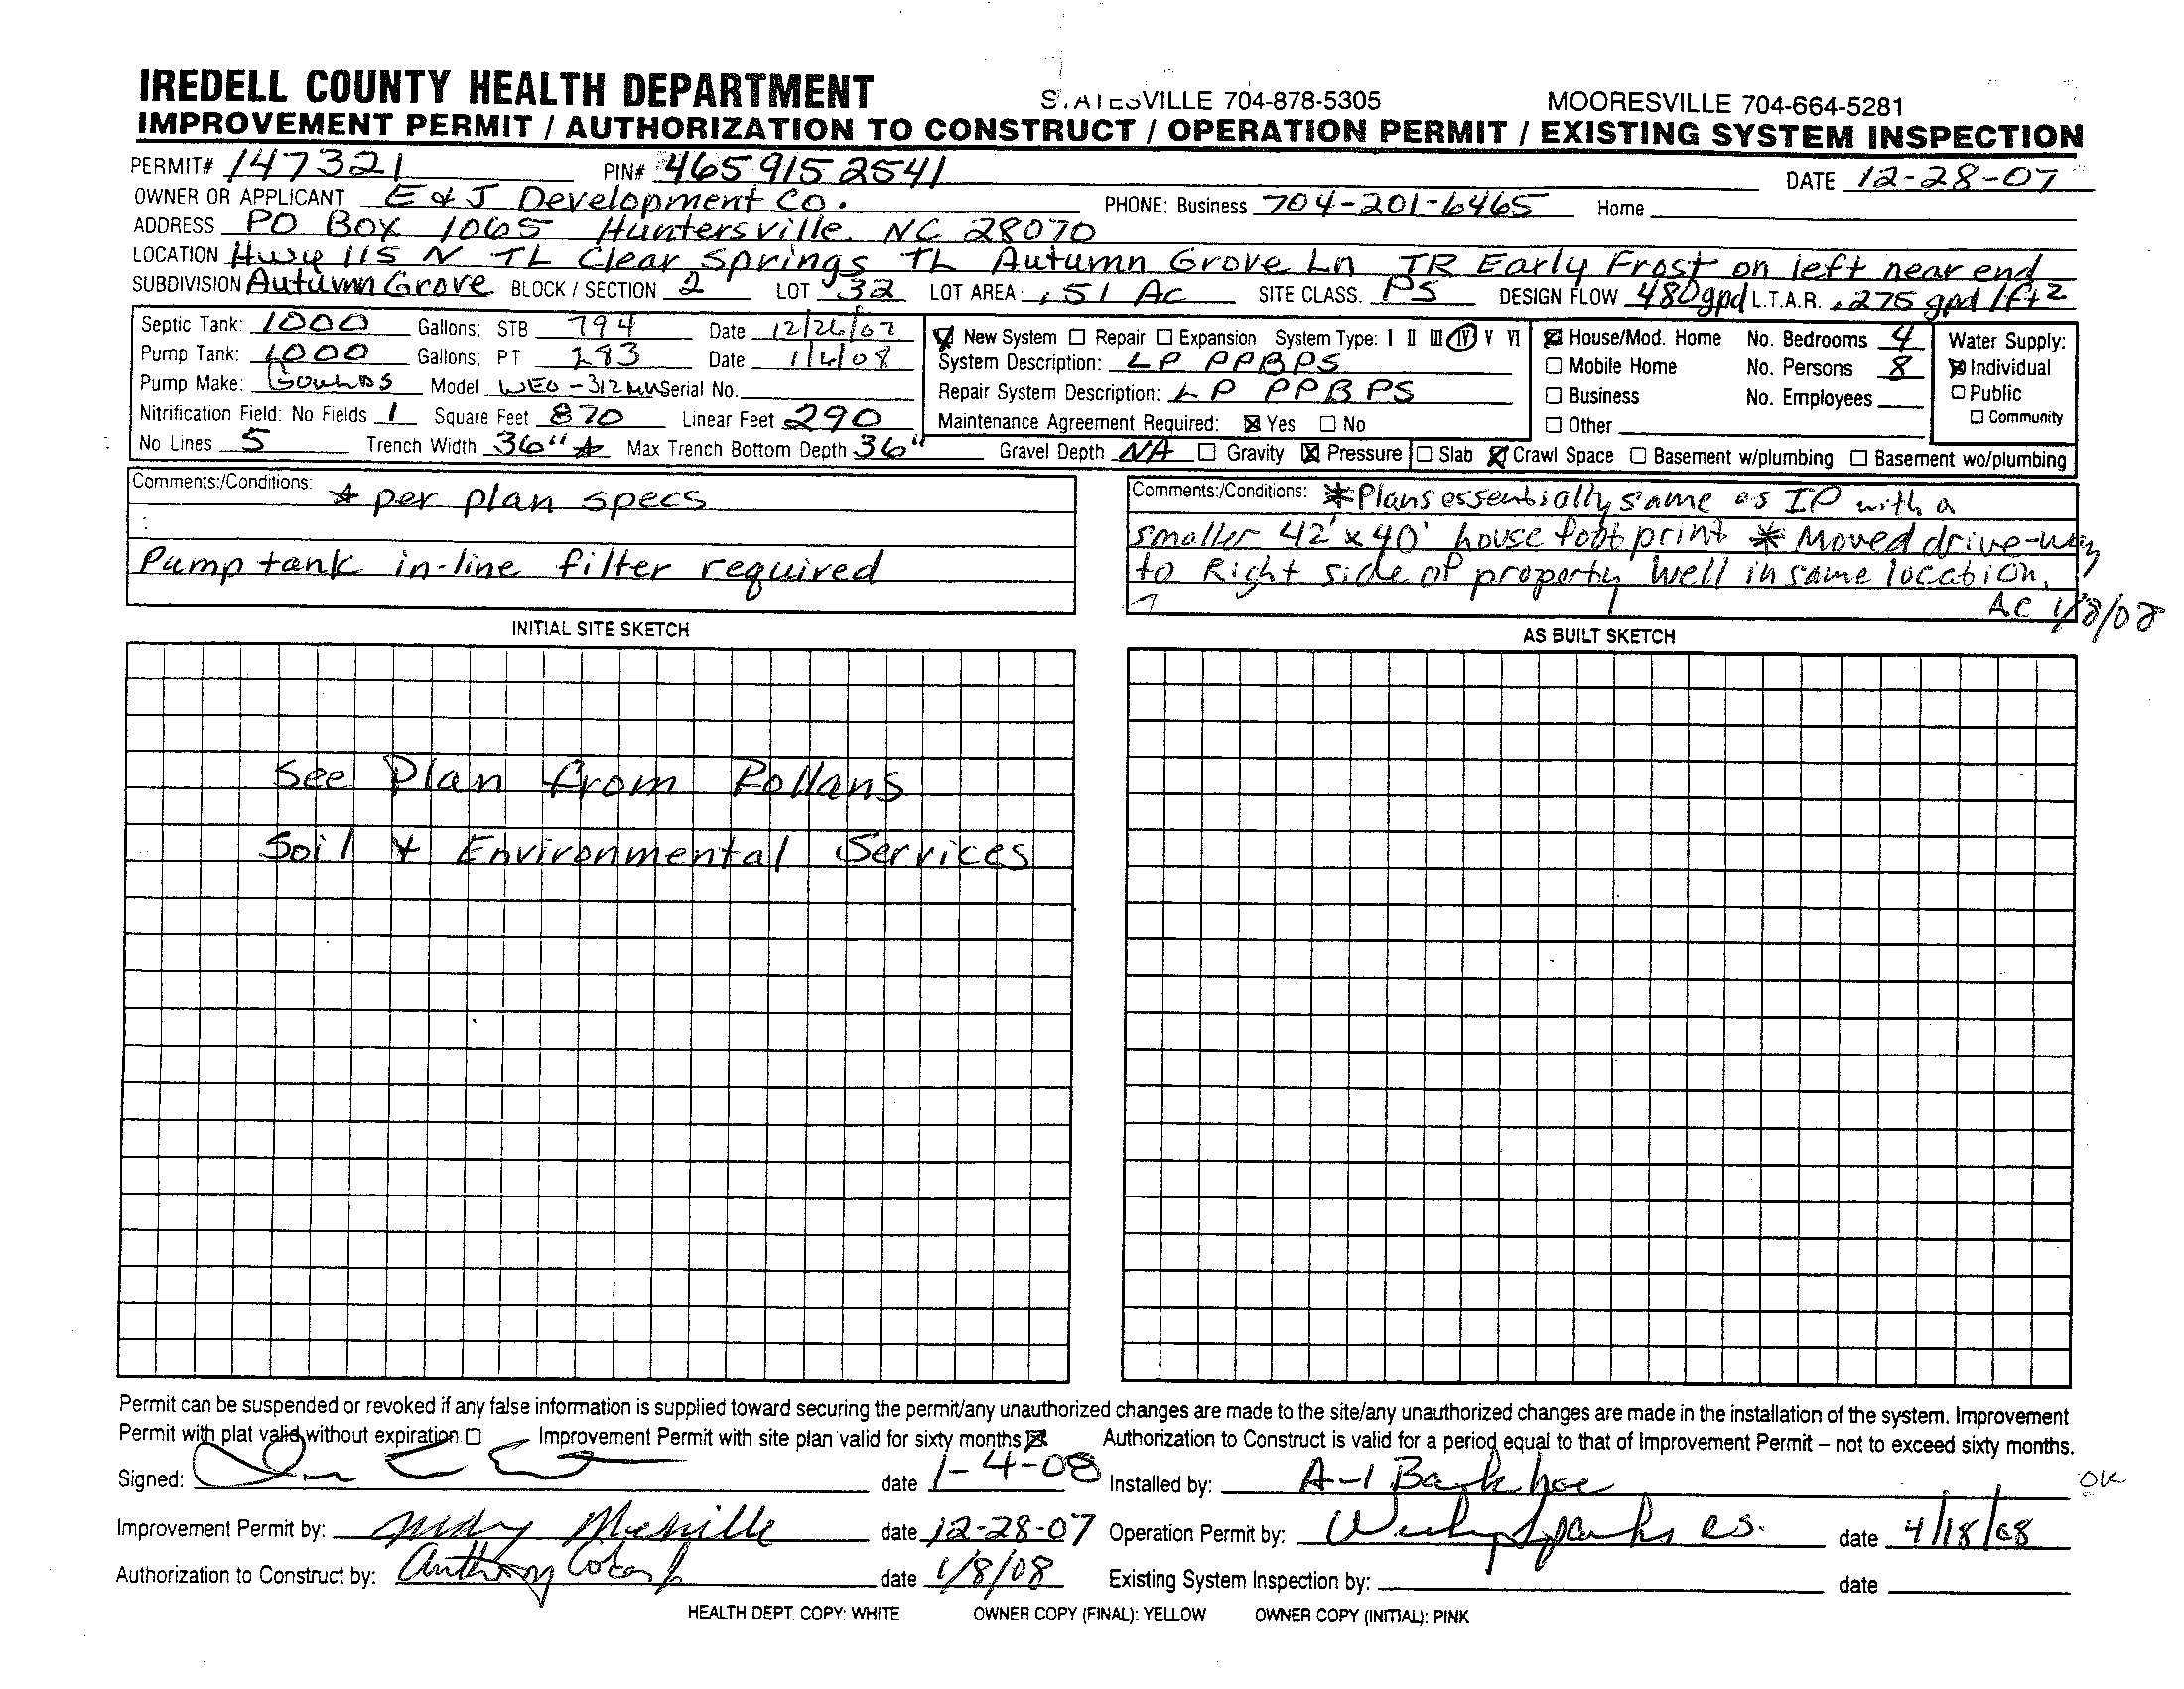 IREDELL COUNTY HEALTH DEPARTMENT STATESVILLE 704-878-5305 MOORESVILLE 704-664-5281
IMPROVEMENT PERMIT / AUTHORIZATION TO CONSTRUCT / OPERATION PERMIT / EXISTING SYSTEM INSPECTION
PERMIT# 147321 PIN# 4659152541 DATE 12-28-07
OWNER OR APPLICANT E & J Development Co. PHONE: Business 704-201-6465 Home
ADDRESS PO Box 1065 Huntersville, NC 28070
LOCATION Hwy 115 N TL Clear Springs TL Autumn Grove Ln TR Early Frost on left near end
SUBDIVISION Autumn Grove BLOCK / SECTION 2 LOT 32 LOT AREA .51 Ac SITE CLASS. PS DESIGN FLOW 480gpd L.T.A.R. .275 gpd/ft2
Septic Tank: 1000 Gallons: STB 794 Date 12/26/07
Pump Tank: 1000 Gallons: PT 283 Date 1/4/08
Pump Make: Goulds Model WEO-312M Serial No.
Nitrification Field: No Fields 1 Square Feet 870 Linear Feet 290
No Lines 5 Trench Width 36" * Max Trench Bottom Depth 36" Gravel Depth NA ☐ Gravity ☒ Pressure ☐ Slab ☒ Crawl Space ☐ Basement w/plumbing ☐ Basement wo/plumbing
☒ New System ☐ Repair ☐ Expansion System Type: I II III IV V VI
System Description: LP PPBPS
Repair System Description: LP PPBPS
Maintenance Agreement Required: ☒ Yes ☐ No
☒ House/Mod. Home No. Bedrooms 4
☐ Mobile Home No. Persons 8
☐ Business No. Employees
☐ Other
Water Supply:
☒ Individual
☐ Public
☐ Community
Comments:/Conditions: * per plan specs
Pump tank in-line filter required
Comments:/Conditions: *Plans essentially same as IP with a
smaller 42'x40' house footprint * Moved drive-way
to Right side of property Well in same location.
AC 1/8/08
INITIAL SITE SKETCH
See Plan from Pollans
Soil & Environmental Services
AS BUILT SKETCH
Permit can be suspended or revoked if any false information is supplied toward securing the permit/any unauthorized changes are made to the site/any unauthorized changes are made in the installation of the system. Improvement
Permit with plat valid without expiration ☐ Improvement Permit with site plan valid for sixty months ☒ Authorization to Construct is valid for a period equal to that of Improvement Permit – not to exceed sixty months.
Signed: date 1-4-08 Installed by: A-1 Backhoe OK
Improvement Permit by: date 12-28-07 Operation Permit by: date 4/18/08
Authorization to Construct by: Anthony date 1/8/08 Existing System Inspection by: date
HEALTH DEPT. COPY: WHITE OWNER COPY (FINAL): YELLOW OWNER COPY (INITIAL): PINK